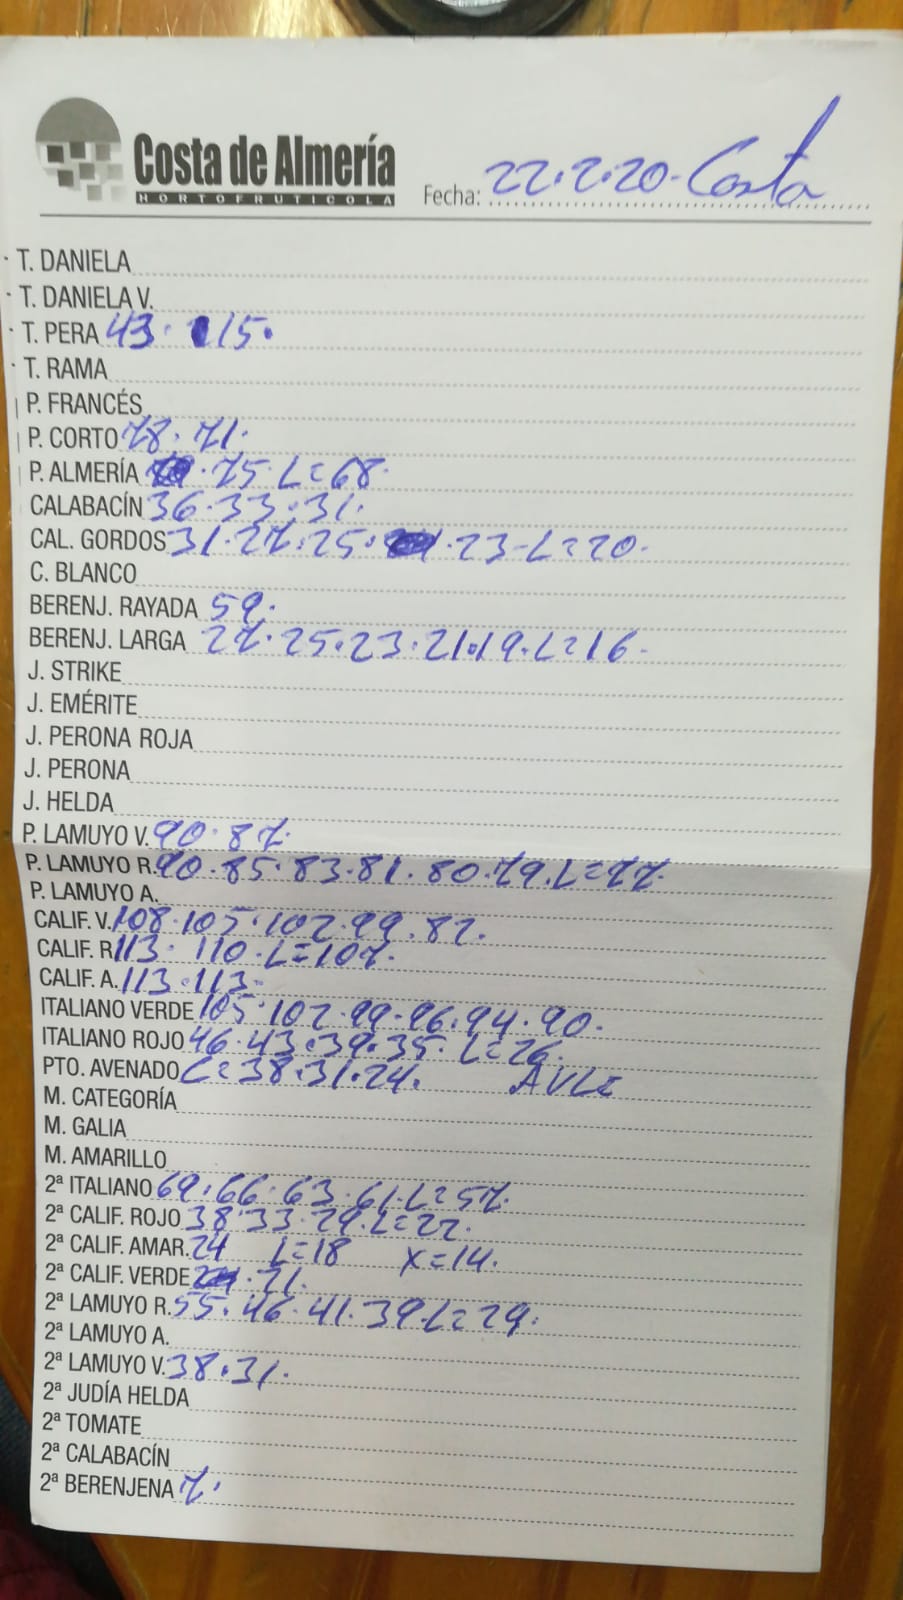 Costa de Almería
HORTOFRUTICOLA
Fecha: 22.2.20. Costa
T. DANIELA
T. DANIELA V.
T. PERA 43. 15.
T. RAMA
P. FRANCÉS
P. CORTO 78. 71.
P. ALMERÍA 75. L=68
CALABACÍN 36. 33. 31.
CAL. GORDOS 31. 27. 25. 23-L=20.
C. BLANCO
BERENJ. RAYADA 59.
BERENJ. LARGA 27. 25. 23. 21. 19. L=16.
J. STRIKE
J. EMÉRITE
J. PERONA ROJA
J. PERONA
J. HELDA
P. LAMUYO V. 90. 87.
P. LAMUYO R. 90. 85. 83. 81. 80. 79. L=77.
P. LAMUYO A.
CALIF. V. 108. 105. 102. 99. 82.
CALIF. R 113. 110. L=107.
CALIF. A. 113. 113.
ITALIANO VERDE 105. 102. 99. 96. 94. 90.
ITALIANO ROJO 46. 43. 39. 35. L=26.
PTO. AVENADO L=38. 31. 24.
M. CATEGORÍA
M. GALIA
M. AMARILLO
2ª ITALIANO 69. 66. 63. 61. L=57.
2ª CALIF. ROJO 38. 33. 29. L=22.
2ª CALIF. AMAR. 24 L=18 X=14.
2ª CALIF. VERDE 21.
2ª LAMUYO R. 55. 46. 41. 39. L=29.
2ª LAMUYO A.
2ª LAMUYO V. 38. 31.
2ª JUDÍA HELDA
2ª TOMATE
2ª CALABACÍN
2ª BERENJENA 7.